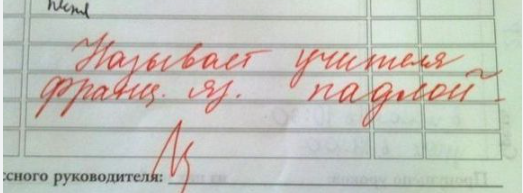 Называет учителя
франц. яз. падлой.
ссного руководителя: